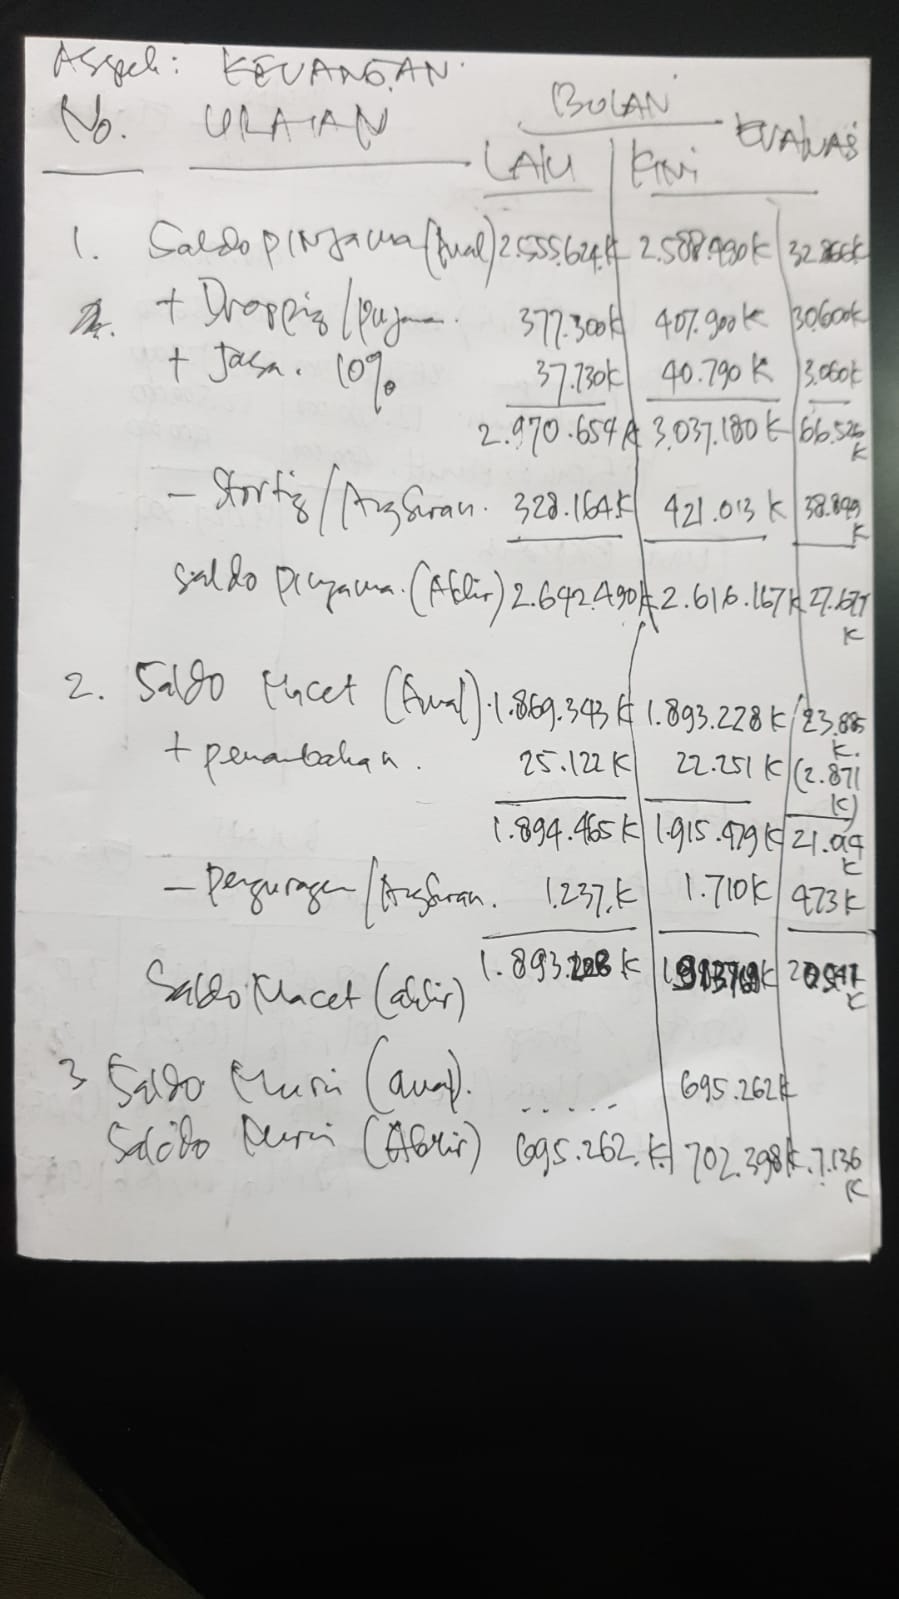 Aspek: KEUANGAN.
No. URAIAN BULAN EVALUASI
LALU KINI
1. Saldo pinjaman (Awal) 2.555.624.K 2.588.490K 32.866K
+ Dropping/pinjam. 377.300K 407.900K 30.600K
+ Jasa. 10% 37.730K 40.790K 3.060K
2.970.654K 3.037.180K 66.526 K
- Storting/Angsuran. 328.164K 421.013K 38.849 K
Saldo pinjaman. (Akhir) 2.642.490K 2.616.167K 27.677 K
2. Saldo Macet (Awal). 1.869.343K 1.893.228K 23.885 K.
+ penambahan. 25.122K 22.251K (2.871 K)
1.894.465K 1.915.479K 21.014 K
- Pengurangan/Angsuran. 1.237.K 1.710K 473K
Saldo Macet (akhir) 1.893.228K
3 Saldo Murni (awal). ...... 695.262K
Saldo Murni (Akhir) 695.262.K. 702.398K. 7.136 K